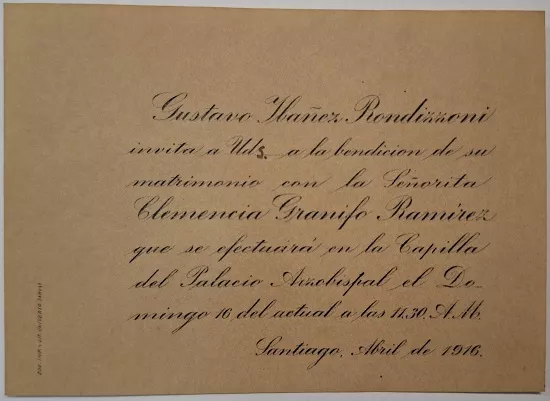 Gustavo Ibañez Rondizzoni
invita a Uds. a la bendicion de su
matrimonio con la Señorita
Clemencia Granifo Ramírez
que se efectuará en la Capilla
del Palacio Arzobispal el Do-
mingo 16 del actual a las 11.30. A.M.
Santiago. Abril de 1916.